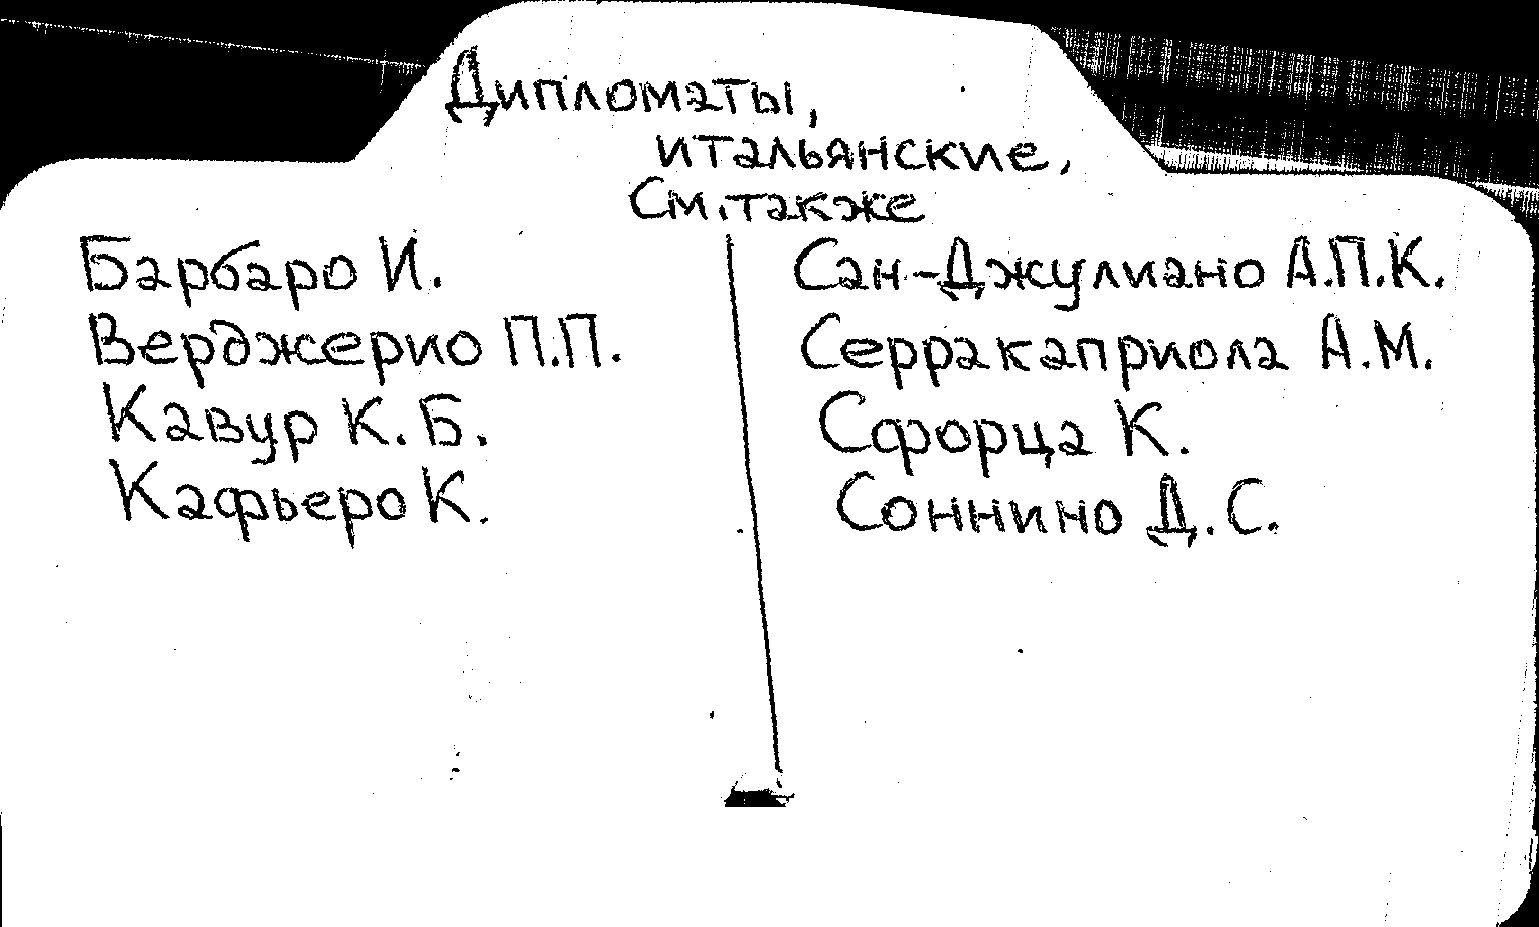 Дипломаты,
итальянские,
См. также
Барбаро И.
Верджерио П.П.
Кавур К. Б.
Кафьеро К.
Сан-Джулиано А.П.К.
Серракаприола А.М.
Сфорца К.
Соннино Д. С.